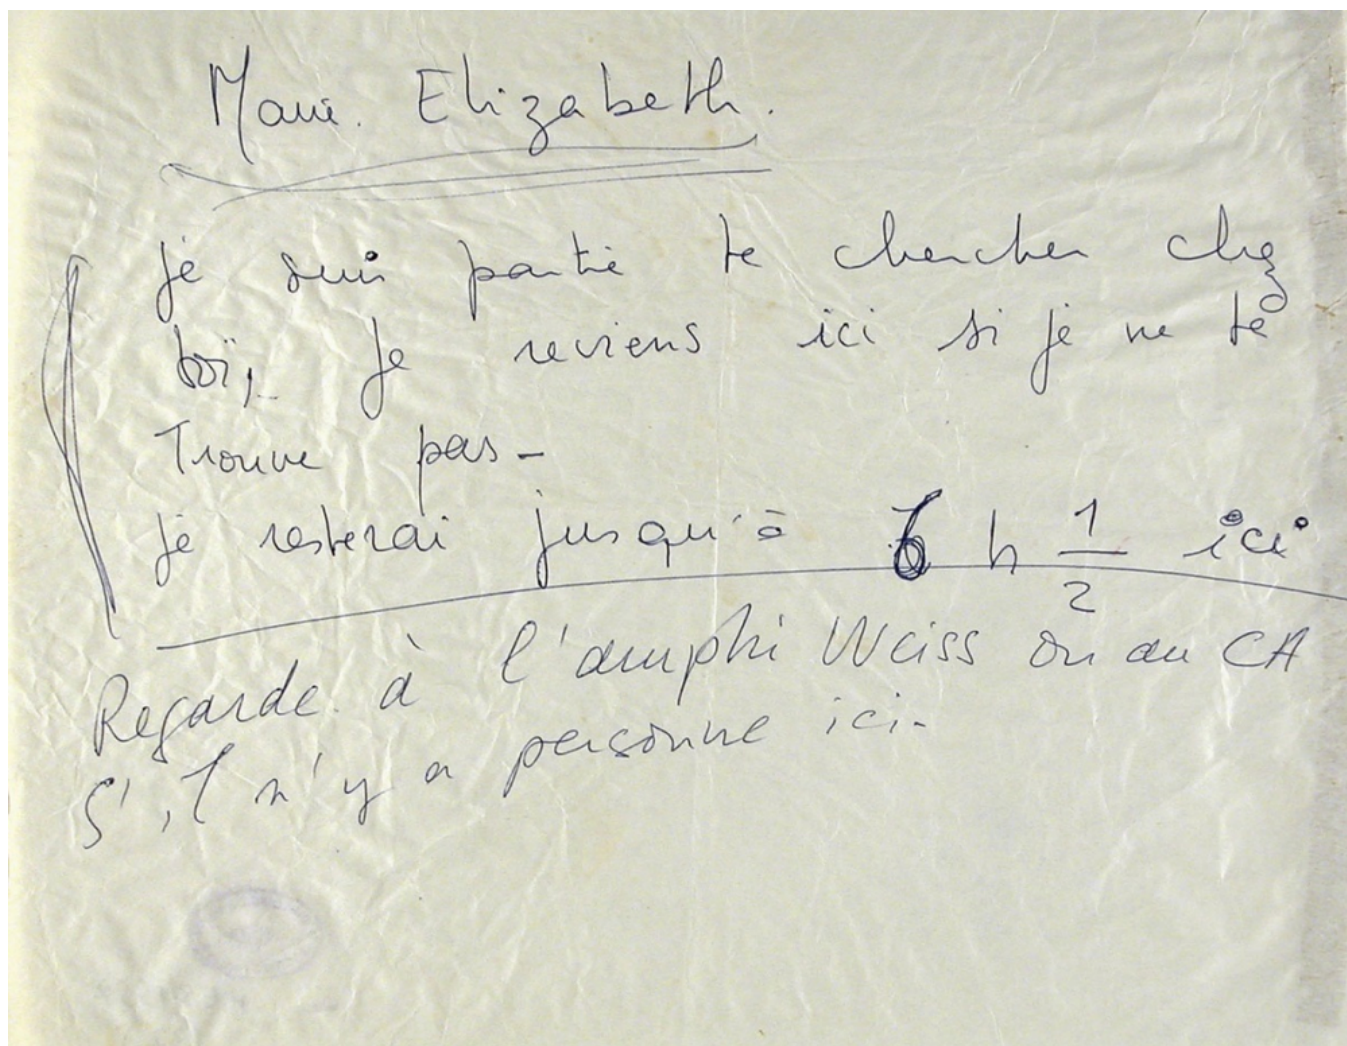 Marie. Elizabeth.
je suis partie te chercher chez
toi, je reviens ici si je ne te
Trouve pas -
je resterai jusqu'à 6 h 1/2 ici
Regarde à l'amphi Weiss ou au CA
S'il n'y a personne ici -